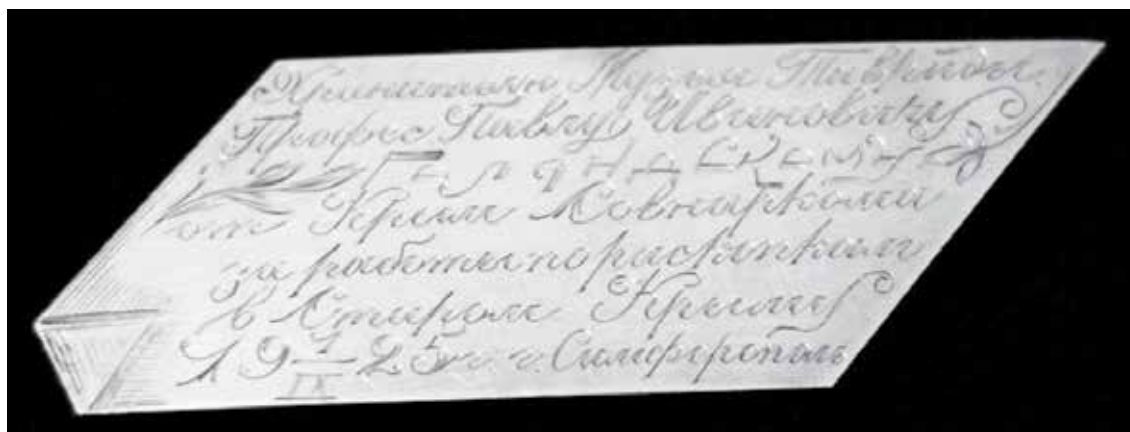 Хранителю Музея Тавриды
Професс Павлу Ивановичу
Голландскому
от Крым Совнаркома
за работы по раскопкам
в Старом Крыму
19 1/IX 25 г. г. Симферополь